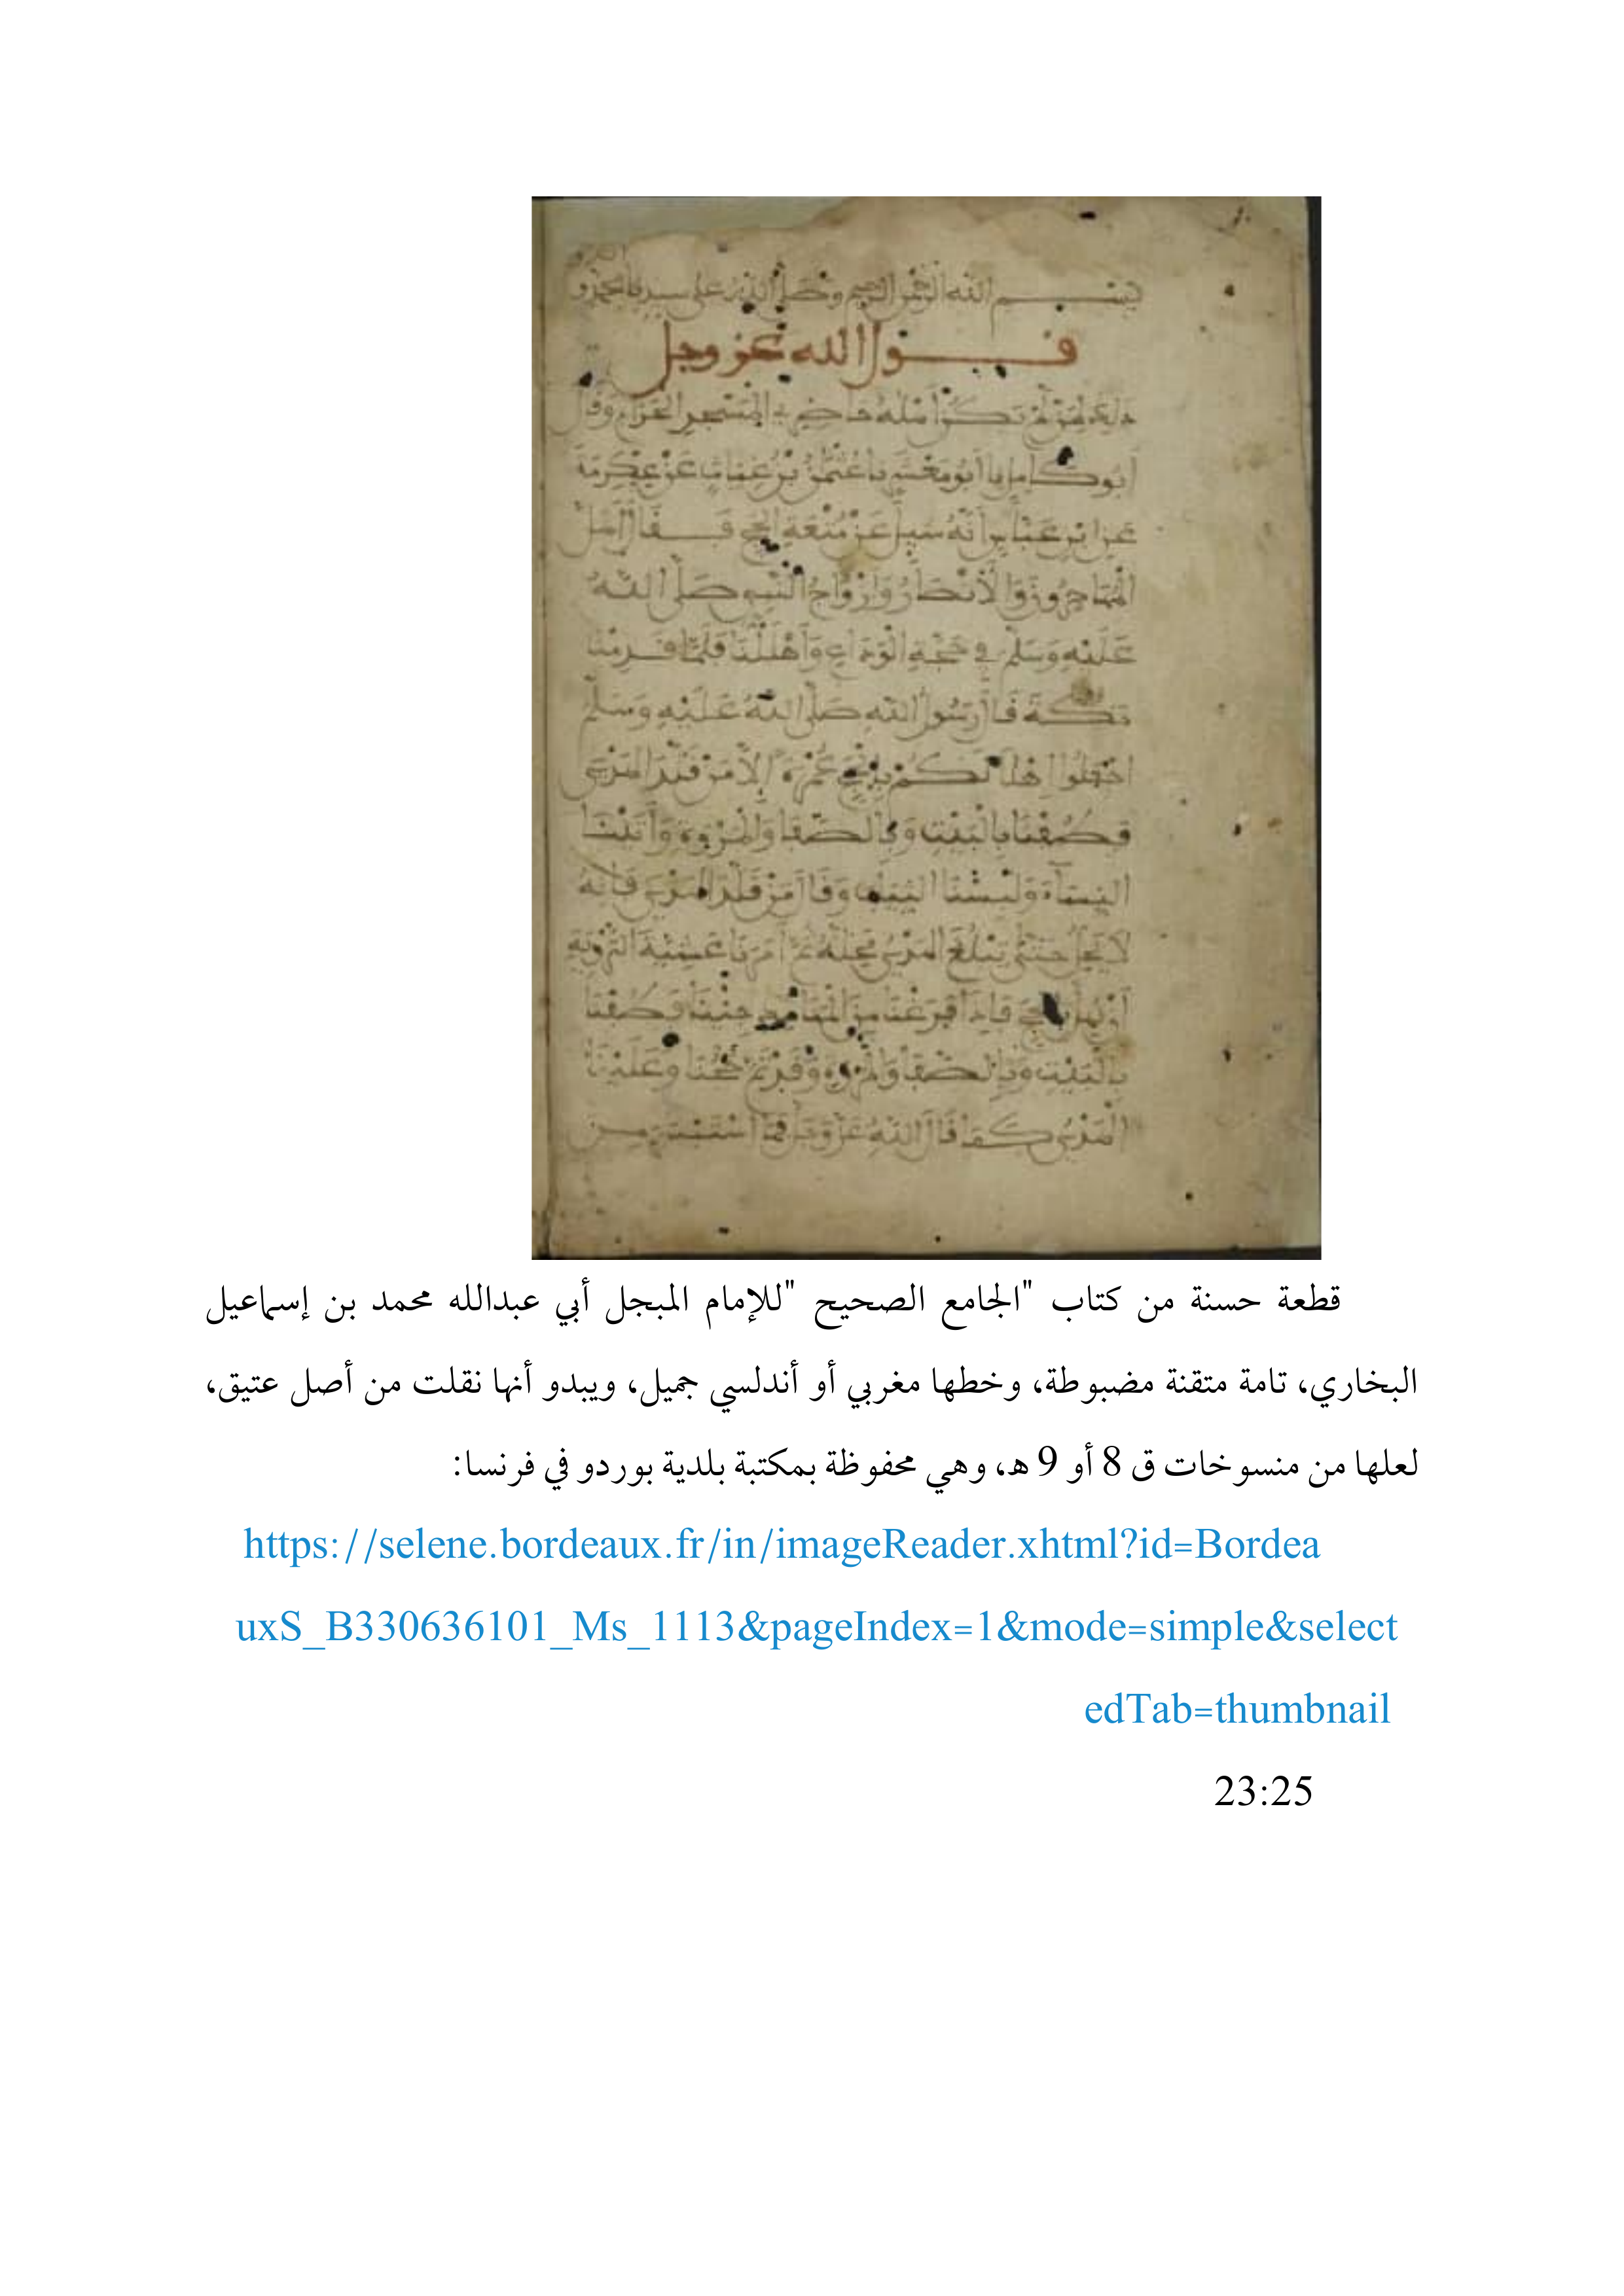 بسم الله الرحمن الرحيم وصلى الله على سيدنا محمد و
قول الله عز وجل
ذلك لمن لم يكن أهله حاضري المسجد الحرام وقال
أبو كامل نا أبو معشر نا عثمن بن غياث عن عكرمة
عن ابن عباس أنه سيل عن متعة الحج فقال أهل
المهاجرون والأنصار وأزواج النبي صلى الله
عليه وسلم في حجة الوداع وأهللنا فلما قدمنا
مكة قال رسول الله صلى الله عليه وسلم
اجعلوا إهلالكم بالحج عمرة إلا من قلد الهدي
فطفنا بالبيت وبالصفا والمروة وأتينا
النساء ولبسنا الثياب وقال من قلد الهدي فإنه
لا يحل حتى يبلغ الهدي محله ثم أمرنا عشية التروية
أن نهل بالحج فإذا فرغنا من المناسك جئنا فطفنا
بالبيت وبالصفا والمروة وقد تم حجنا وعلينا
الهدي كما قال الله عز وجل فما استيسر من
قطعة حسنة من كتاب "الجامع الصحيح "للإمام المبجل أبي عبدالله محمد بن إسماعيل
البخاري، تامة متقنة مضبوطة، وخطها مغربي أو أندلسي جميل، ويبدو أنها نقلت من أصل عتيق،
لعلها من منسوخات ق 8 أو 9 هـ، وهي محفوظة بمكتبة بلدية بوردو في فرنسا:
https://selene.bordeaux.fr/in/imageReader.xhtml?id=Bordea
uxS_B330636101_Ms_1113&pageIndex=1&mode=simple&select
edTab=thumbnail
23:25